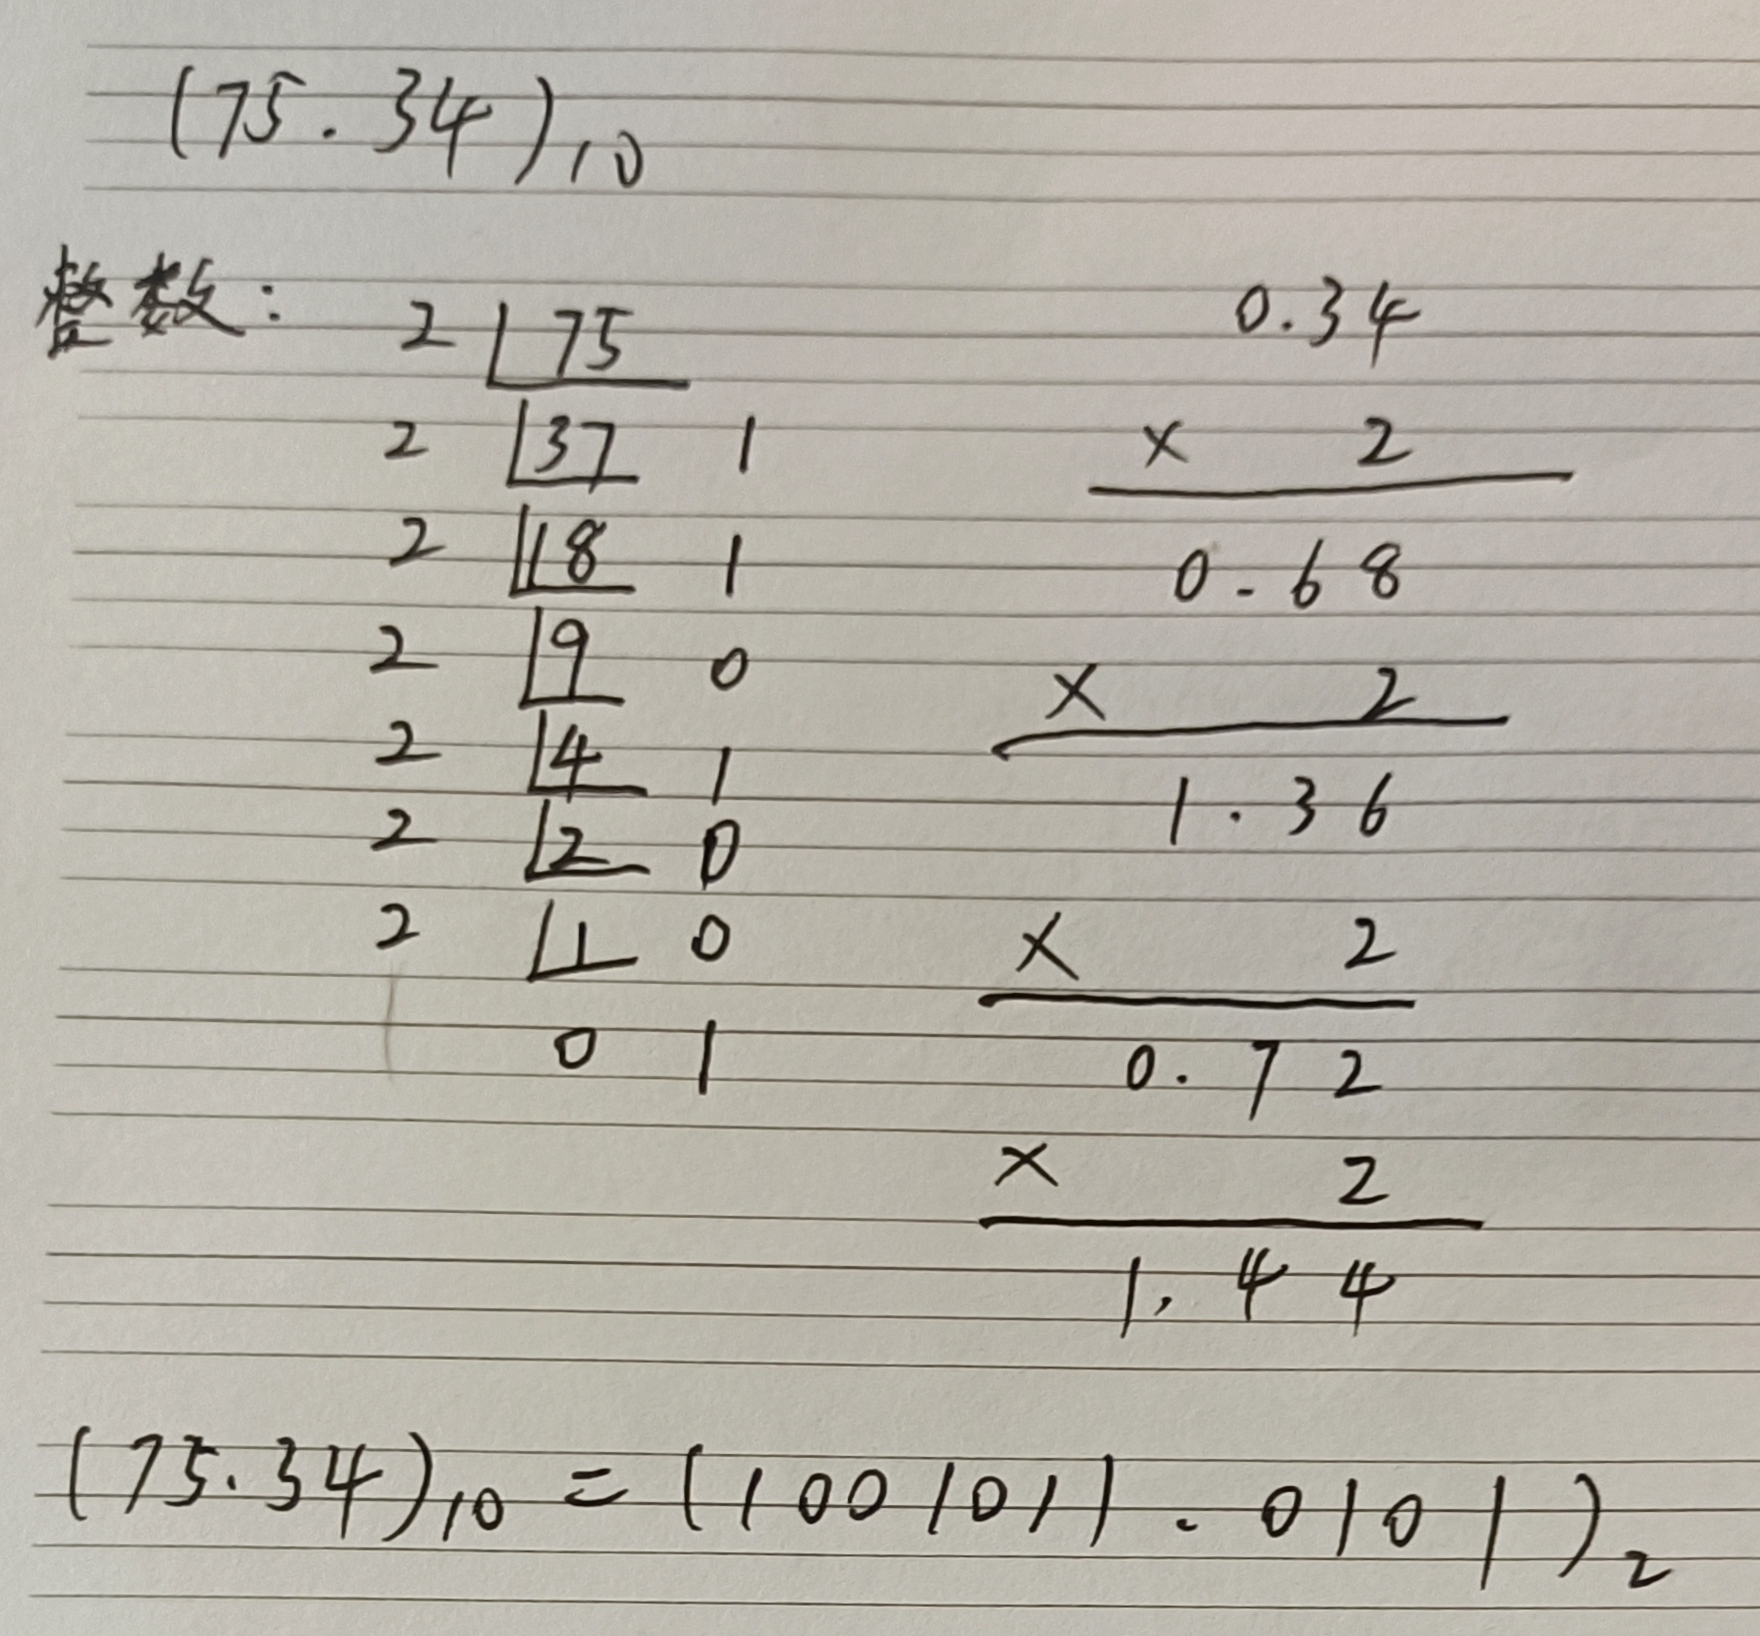 (75.34)₁₀
整数:
2 75
2 37 1
2 18 1
2 9 0
2 4 1
2 2 0
2 1 0
0 1
0.34
× 2
0.68
× 2
1.36
× 2
0.72
× 2
1.44
(75.34)₁₀ = (1001011.0101)₂